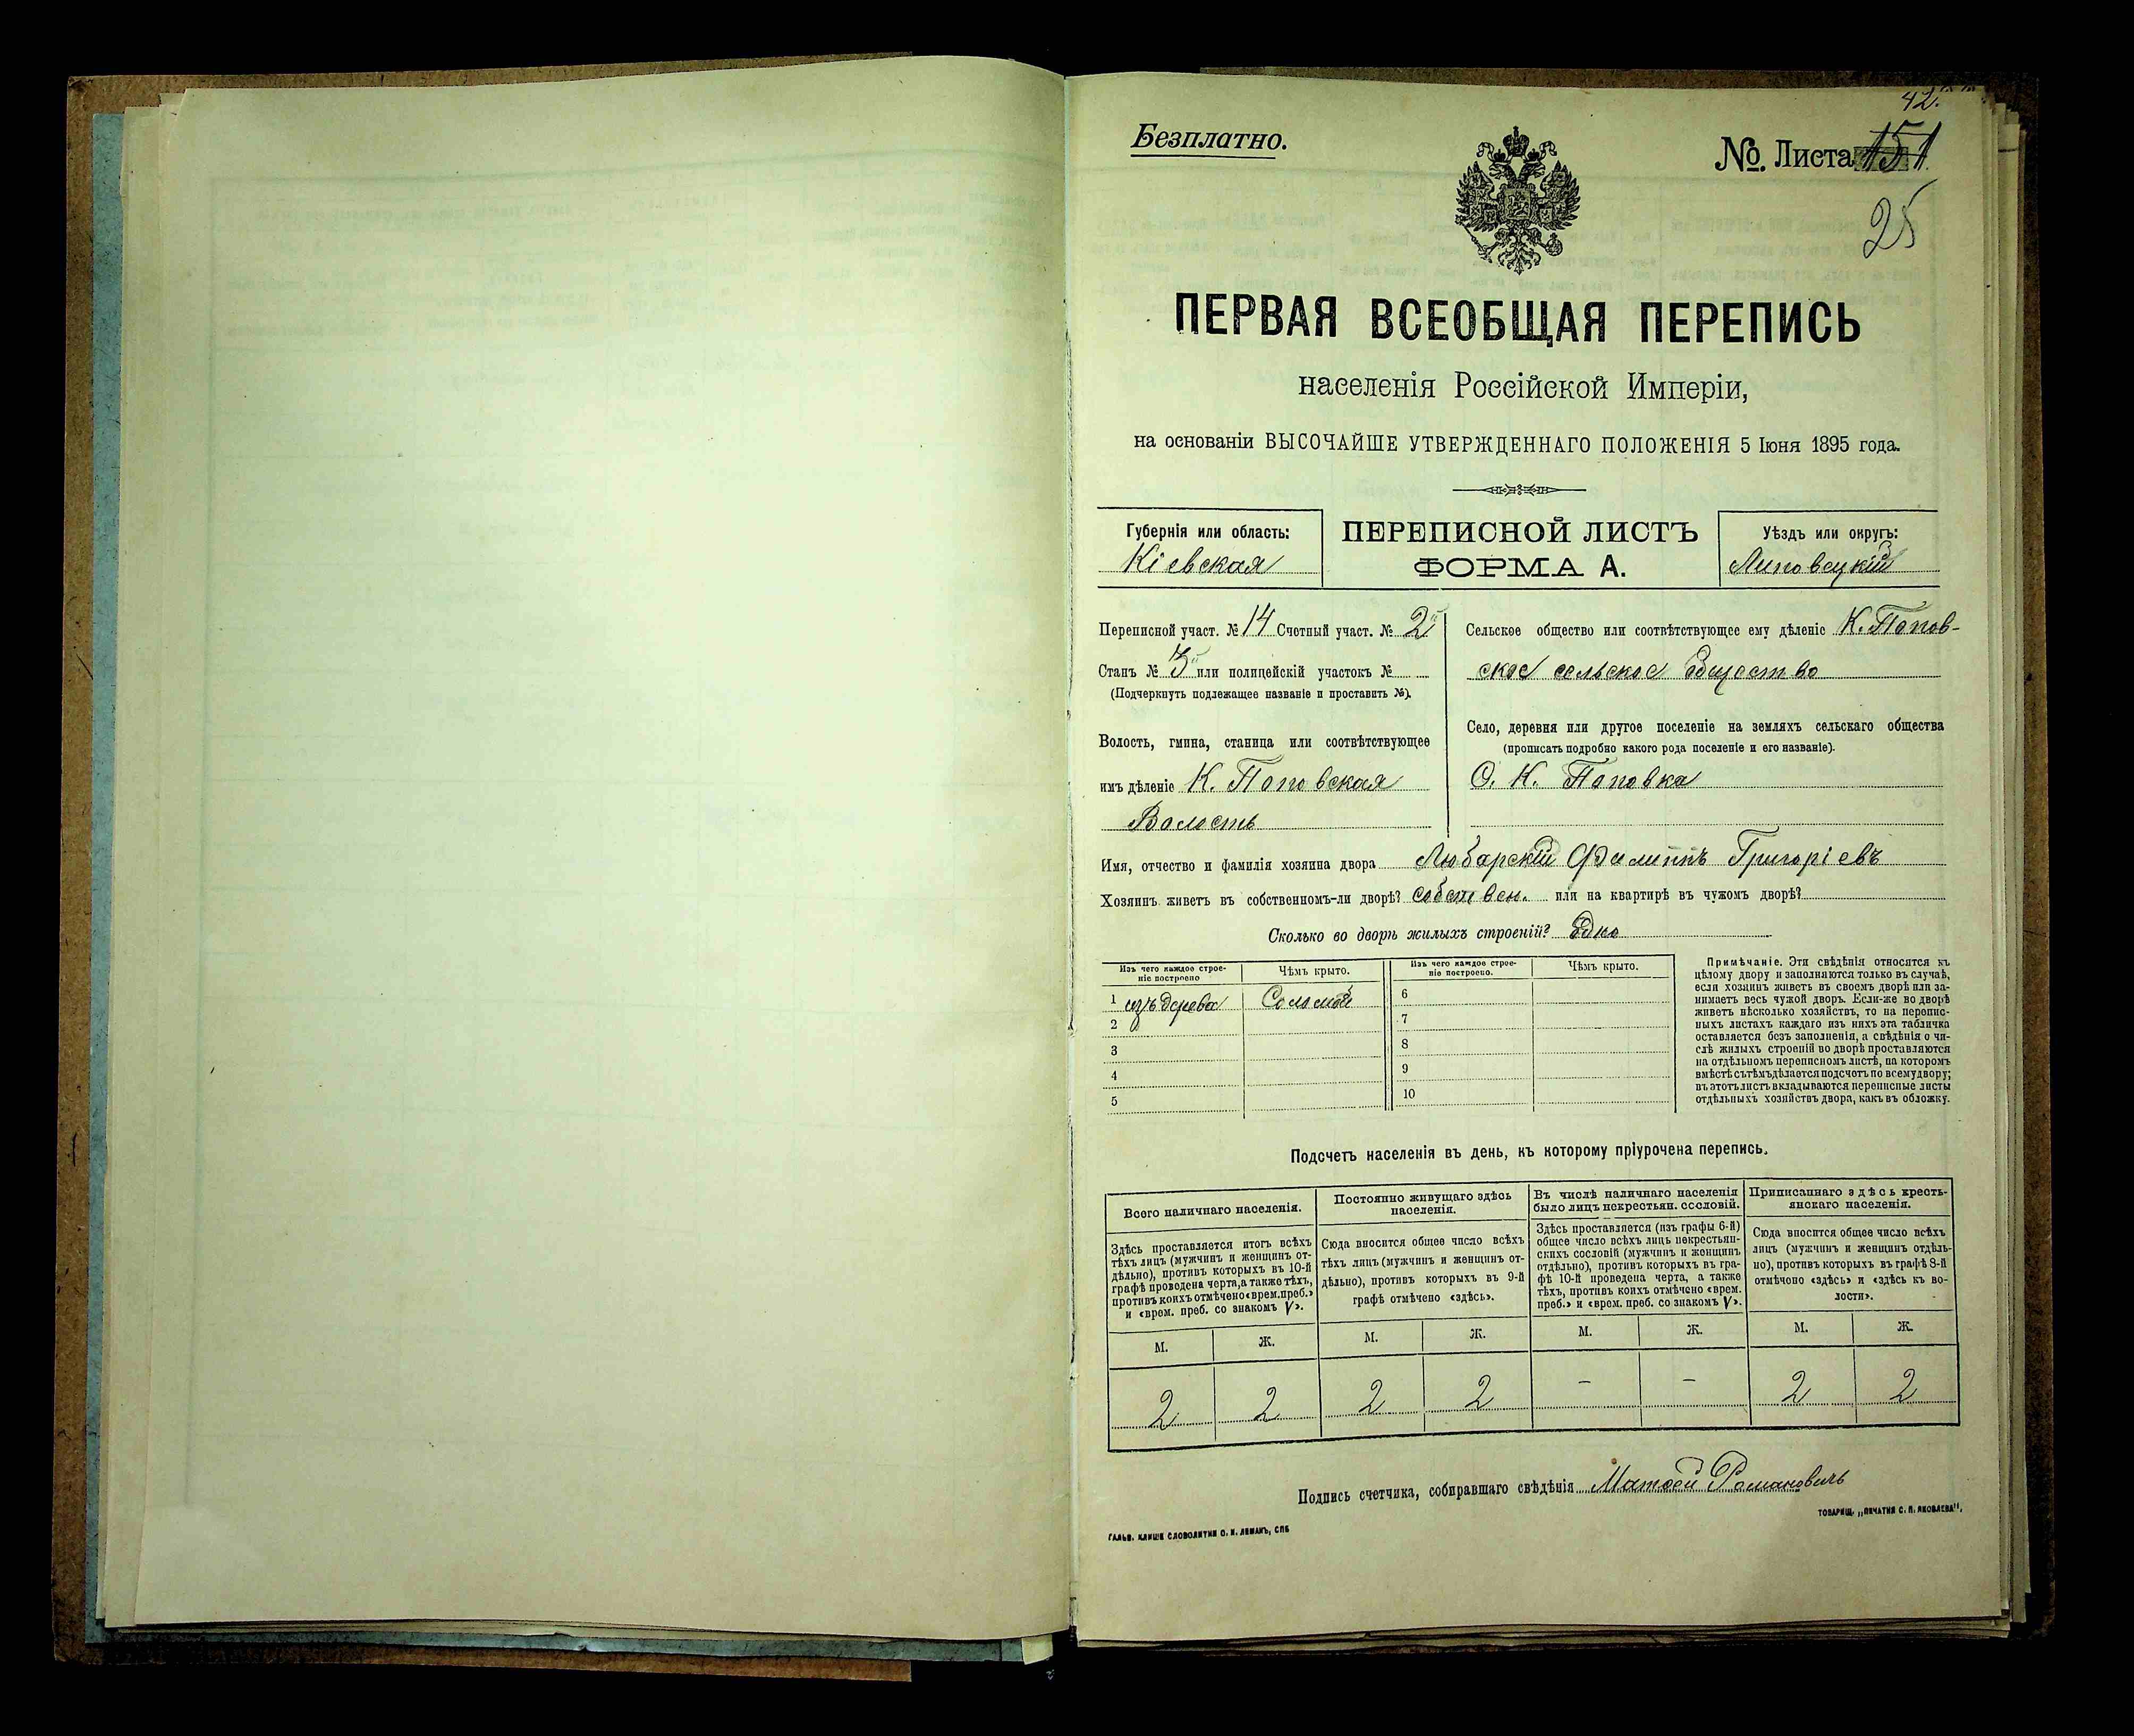 42.
Безплатно.
№. Листа 151
25
ПЕРВАЯ ВСЕОБЩАЯ ПЕРЕПИСЬ
населенія Россійской Имперіи,
на основаніи ВЫСОЧАЙШЕ УТВЕРЖДЕННАГО ПОЛОЖЕНІЯ 5 Іюня 1895 года.
Губернія или область:
Кіевская
ПЕРЕПИСНОЙ ЛИСТЪ
ФОРМА А.
Уѣздъ или округъ:
Липовецкій
Переписной участ. № 14 Счетный участ. № 2й
Станъ № 3й или полицейскій участокъ №
(Подчеркнуть подлежащее названіе и проставить №).
Волость, гмина, станица или соотвѣтствующее
имъ дѣленіе К. Поповская
Волость
Сельское общество или соотвѣтствующее ему дѣленіе К. Попов-
ское сельское общество
Село, деревня или другое поселеніе на земляхъ сельскаго общества
(прописать подробно какого рода поселеніе и его названіе).
С. К. Поповка
Имя, отчество и фамилія хозяина двора Любарскій Филиппъ Григоріевъ
Хозяинъ живетъ въ собственномъ-ли дворѣ? собствен. или на квартирѣ въ чужомъ дворѣ?
Сколько во дворѣ жилыхъ строеній? Одно
Изъ чего каждое строе-
ніе построено
Чѣмъ крыто.
1 изъ дерева Соломой
2
3
4
5
Изъ чего каждое строе-
ніе построено.
Чѣмъ крыто.
6
7
8
9
10
Примѣчаніе. Эти свѣдѣнія относятся къ
цѣлому двору и заполняются только въ случаѣ,
если хозяинъ живетъ въ своемъ дворѣ или за-
нимаетъ весь чужой дворъ. Если-же во дворѣ
живетъ нѣсколько хозяйствъ, то на перепис-
ныхъ листахъ каждаго изъ нихъ эта табличка
оставляется безъ заполненія, а свѣдѣнія о чи-
слѣ жилыхъ строеній во дворѣ проставляются
на отдѣльномъ переписномъ листѣ, на которомъ
вмѣстѣ съ тѣмъ дѣлается подсчотъ по всему двору;
въ этотъ листъ вкладываются переписные листы
отдѣльныхъ хозяйствъ двора, какъ въ обложку.
Подсчетъ населенія въ день, къ которому пріурочена перепись.
Всего наличнаго населенія.
Здѣсь проставляется итогъ всѣхъ
тѣхъ лицъ (мужчинъ и женщинъ от-
дѣльно), противъ которыхъ въ 10-й
графѣ проведена черта, а также тѣхъ,
противъ коихъ отмѣчено «врем. преб.»
и «врем. преб. со знакомъ V».
М. Ж.
2 2
Постоянно живущаго здѣсь
населенія.
Сюда вносится общее число всѣхъ
тѣхъ лицъ (мужчинъ и женщинъ от-
дѣльно), противъ которыхъ въ 9-й
графѣ отмѣчено «здѣсь».
М. Ж.
2 2
Въ числѣ наличнаго населенія
было лицъ некрестьян. сословій.
Здѣсь проставляется (изъ графы 6-й)
общее число всѣхъ лицъ некрестьян-
скихъ сословій (мужчинъ и женщинъ
отдѣльно), противъ которыхъ въ гра-
фѣ 10-й проведена черта, а также
тѣхъ, противъ коихъ отмѣчено «врем.
преб.» и «врем. преб. со знакомъ V».
М. Ж.
– –
Приписаннаго здѣсь кресть-
янскаго населенія.
Сюда вносится общее число всѣхъ
лицъ (мужчинъ и женщинъ отдѣль-
но), противъ которыхъ въ графѣ 8-й
отмѣчено «здѣсь» и «здѣсь къ во-
лости».
М. Ж.
2 2
Подпись счетчика, собиравшаго свѣдѣнія Матвей Романовичъ
ГАЛЬВ. КЛИШЕ СЛОВОЛИТНИ О. И. ЛЕМАНЪ, СПБ
ТОВАРИЩ. „ПЕЧАТНЯ С. П. ЯКОВЛЕВА".